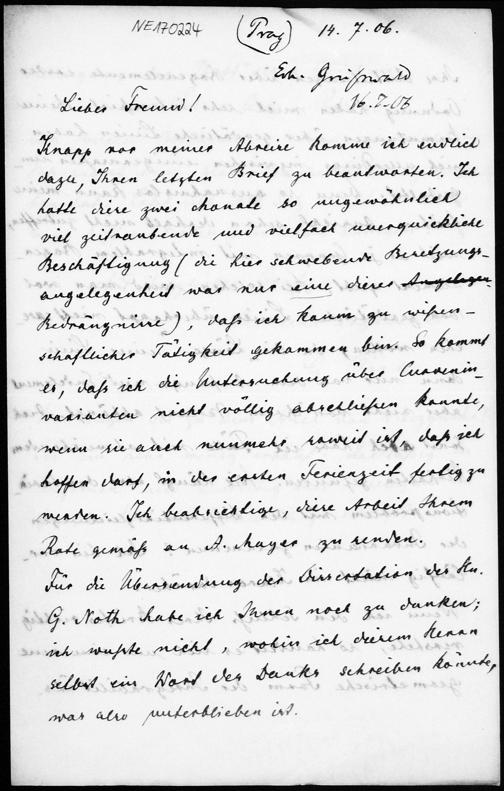 NE170224
(Prag) 14. 7. 06.
Erh. Greifswald
16.7.06
Lieber Freund!
Knapp vor meiner Abreise komme ich endlich
dazu, Ihren letzten Brief zu beantworten. Ich
hatte diese zwei Monate so ungewöhnlich
viel zeitraubende und vielfach unerquickliche
Beschäftigung (die hier schwebende Besetzungs-
angelegenheit war nur eine dieser
Bedrängnisse), daß ich kaum zu wissen-
schaftlicher Tätigkeit gekommen bin. So kommt
es, daß ich die Untersuchung über Curvenin-
varianten nicht völlig abschließen konnte,
wenn sie auch nunmehr soweit ist, daß ich
hoffen darf, in der ersten Ferienzeit fertig zu
werden. Ich beabsichtige, diese Arbeit Ihrem
Rate gemäß an A. Mayer zu senden.
Für die Übersendung der Dissertation des Hn.
G. Noth habe ich Ihnen noch zu danken;
ich wußte nicht, wohin ich diesem Herrn
selbst ein Wort des Danks schreiben könnte,
was also unterblieben ist.